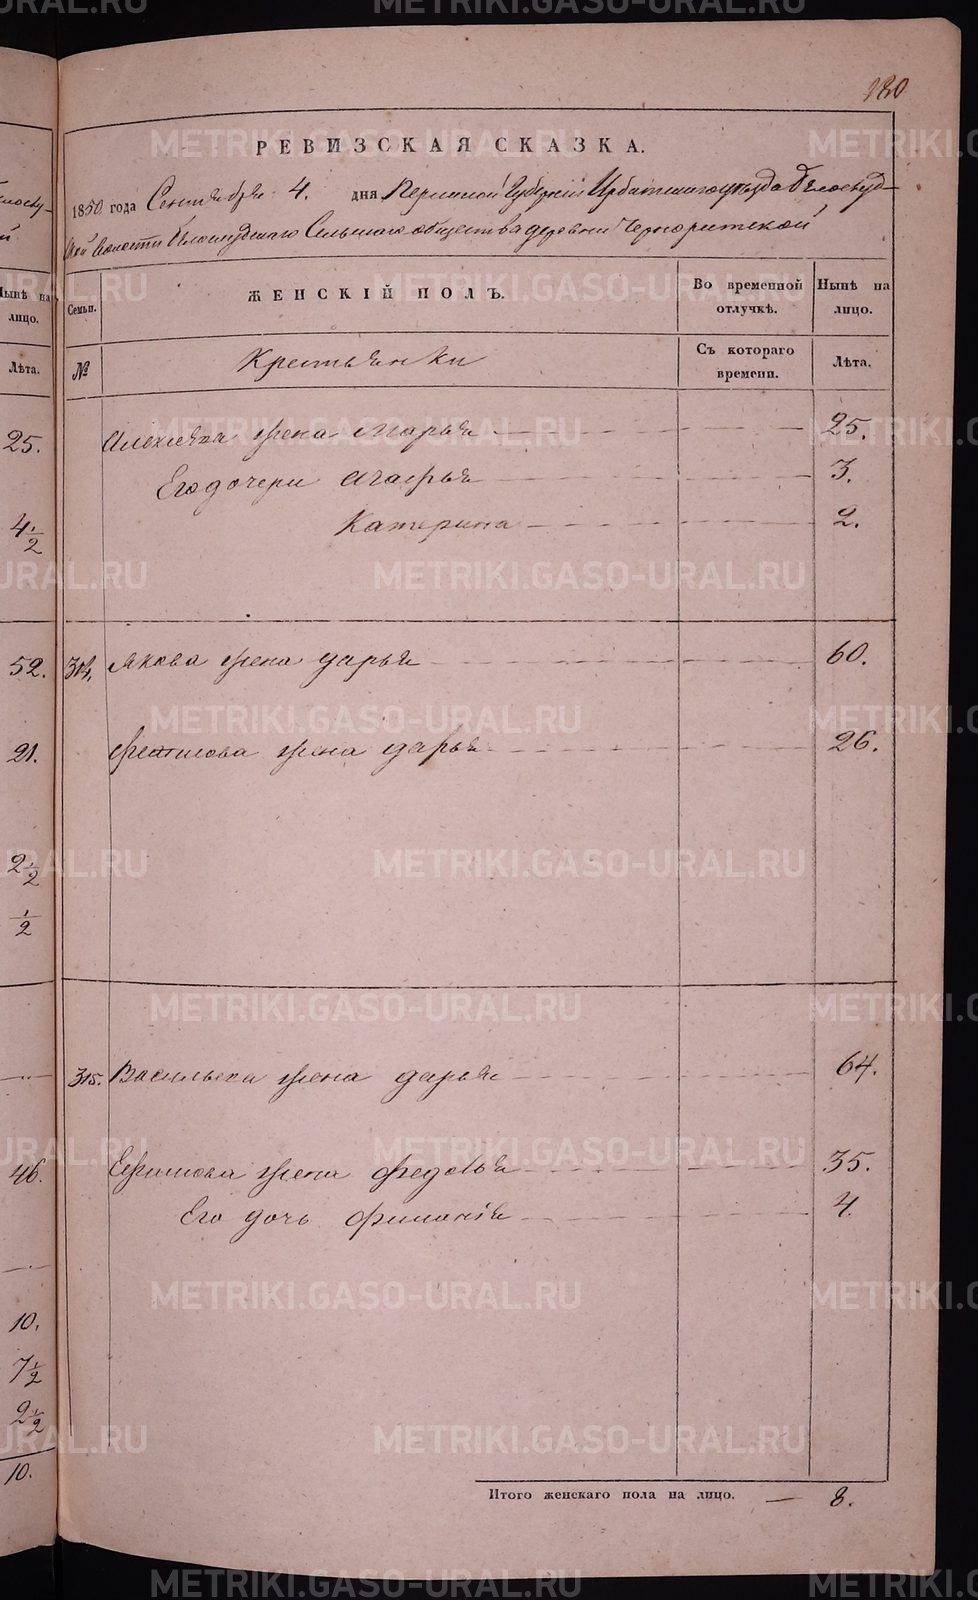 130
РЕВИЗСКАЯ СКАЗКА.
1850 года Сентября 4. дня Пермской Губернии Ирбитскаго уезда Белослуд-
ской волости Белослудскаго Сельскаго общества деревни
Семьи.
ЖЕНСКІЙ ПОЛЪ.
Во временной отлучкѣ.
Нынѣ на лицо.
№
Крестьянки
Съ котораго времени.
Лѣта.
Алексѣева жена Марья 25.
Его дочери Агафья 3.
Катерина 2.
314. Якова жена дарья 60.
жена дарья 26.
315. Васильева жена дарья 64.
Ефимова жена Федосья 35.
Его дочь 4.
Итого женскаго пола на лицо. — 8.
Нынѣ на лицо.
Лѣта.
25.
4 1/2
52.
21.
2 1/2
1/2
46.
10.
7 1/2
2 1/2
10.
METRIKI.GASO-URAL.RU